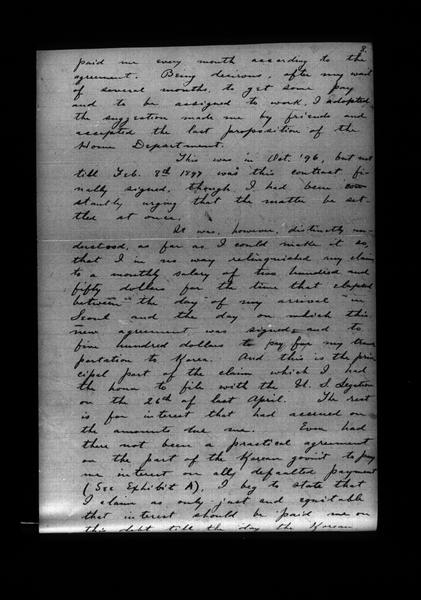 8.
paid me every month according to the
agreement. Being desirous, after my wait
of several months, to get some pay
and to be assigned to work, I adopted
the suggestion made me by friends and
accepted the last proposition of the
Home Department.
This was in Oct. '96, but not
till Feb. 8th 1897 was this contract fi-
nally signed, though I had been con-
stantly urging that the matter be set-
tled at once.
It was, however, distinctly un-
derstood, as far as I could make it so,
that I in no way relinquished my claim
to a monthly salary of two hundred and
fifty dollars for the time that elapsed
between the day of my arrival in
Seoul and the day on which this
new agreement was signed, and to
five hundred dollars to pay for my trans
portation to Korea. And this is the prin
cipal part of the claim which I had
the honor to file with the U. S. Legation
on the 26th of last April. The rest
is for interest that had accrued on
the amounts due me. Even had
there not been a practical agreement
on the part of the Korean gov't to pay
me interest on all defaulted payment
(See Exhibit A), I beg to state that
I claim as only just and equitable
that interest should be paid me on
this debt till the day the Korean